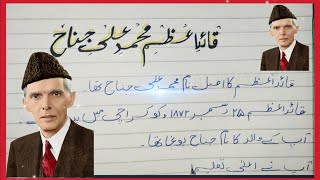 قائداعظم محمد علی جناح
قائداعظم کا اصل نام محمد علی جناح تھا۔
قائداعظم ۲۵ دسمبر ۱۸۷۶ء کو کراچی میں
آپ کے والد کا نام جناح پونجا تھا۔
آپ نے اعلیٰ تعلیم